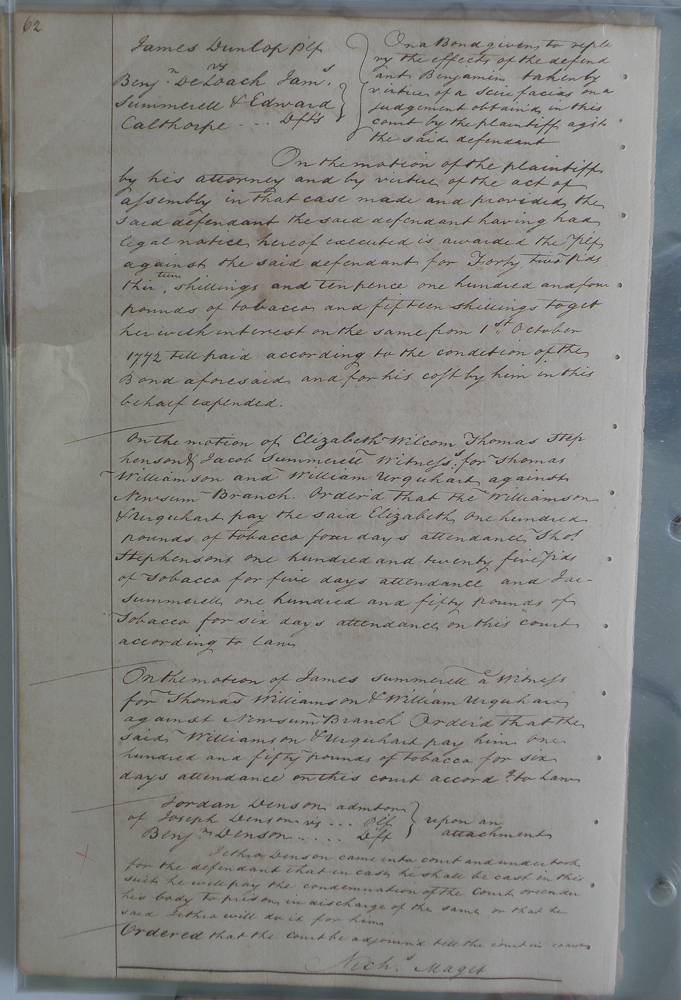 62
James Dunlop Plf
vs
Benj.n DeLoach Jam.s
Summerell & Edward
Calthorpe ... Dfts
On a Bond given to reple
vy the effects of the defend
ant Benjamin taken by
virtue of a scire facias on a
judgement obtaind in this
court by the plaintiff agst
the said defendant
On the motion of the plaintiff
by his attorney and by virtue of the act of
assembly in that case made and provided the
said defendant the said defendant having had
legal notice hereof executed is awarded the Plf
against the said defendant for Forty two Pds
thirteen shillings and ten pence one hundred and four
pounds of tobacco and fifteen shillings toget
her with interest on the same from 1st October
1772 till paid according to the condition of the
Bond aforesaid and for his cost by him in this
behalf expended.
On the motion of Elizabeth Wilcom Thomas Step
henson & Jacob Summerell Witness.s for Thomas
Williamson and William Urquhart against
Newsum Branch. Order'd that the Williamson
& Urquhart pay the said Elizabeth one hundred
pounds of tobacco four days attendance Thos
Stephensons one hundred and twenty five Pds
of Tobacco for five days attendance and Jac-
Summerell one hundred and fifty pounds of
Tobacco for six days attendance on this court
according to law
On the motion of James Summerell a Witness
for Thomas Williamson & William Urquhart
against Newsum Branch Order'd that the
said Williamson & Urquhart pay him one
hundred and fifty pounds of tobacco for six
days attendance on this court accord.g to Law
Jordan Denson admtor
of Joseph Denson vs ... Plf
Benj.n Denson ..... Dft
upon an
attachment
Jethro Denson came into court and undertook
for the defendant that in case he shall be cast in this
suit he will pay the condemnation of the Court or render
his body to prison in discharge of the same or that he
said Jethro will do it for him
Ordered that the Court be adjourn'd till the court in course
Nich.s Maget